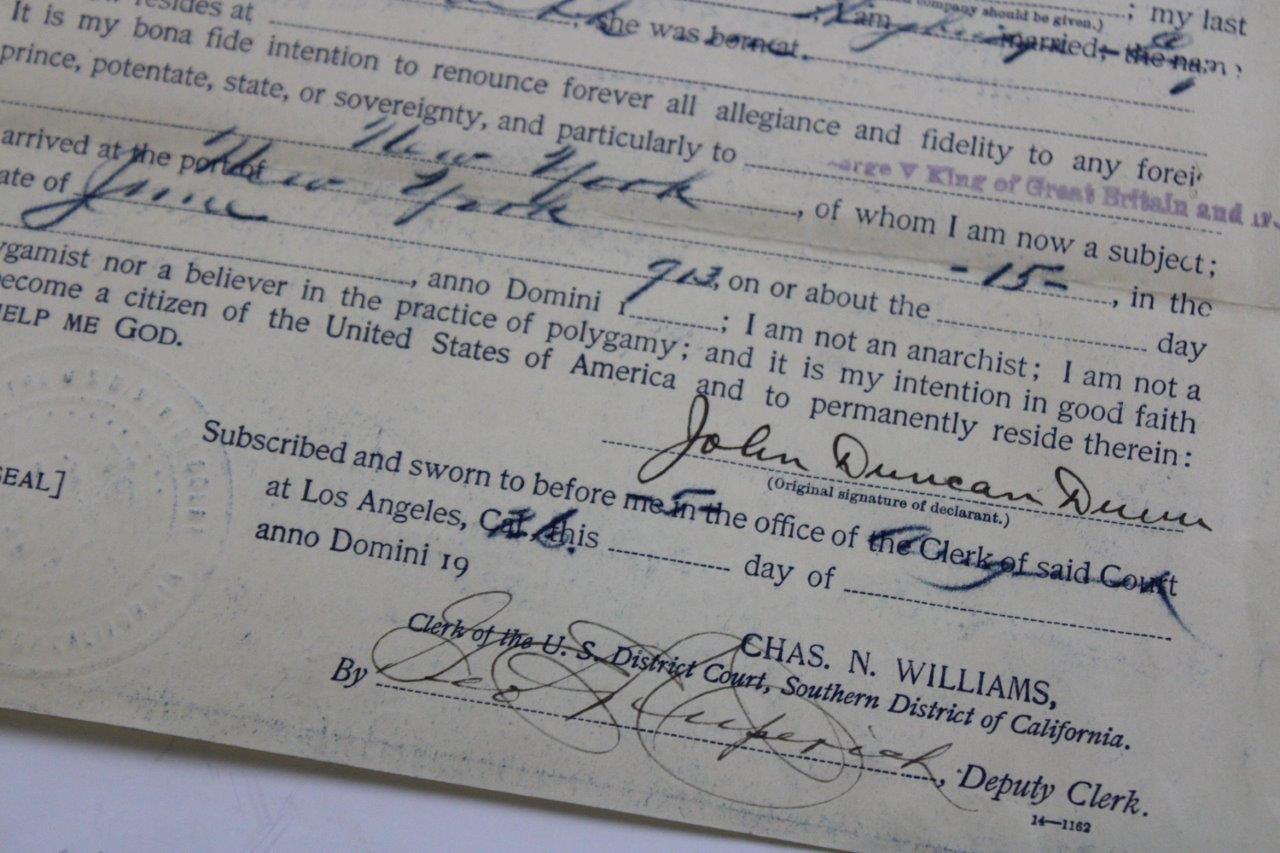 resides at ; my last
company should be given.)
she was born at. I am married; the nam
It is my bona fide intention to renounce forever all allegiance and fidelity to any forei
prince, potentate, state, or sovereignty, and particularly to
George V King of Great Britain and
New York, of whom I am now a subject;
arrived at the port of New York -15-, in the
ate of June York
, anno Domini 1913, on or about the day
ygamist nor a believer in the practice of polygamy; I am not an anarchist; I am not a
become a citizen of the United States of America and it is my intention in good faith
and to permanently reside therein:
HELP ME GOD.
John Duncan Dunn
(Original signature of declarant.)
SEAL]
Subscribed and sworn to before me in the office of the Clerk of said Court
at Los Angeles, Cal. this day of
anno Domini 19
CHAS. N. WILLIAMS,
Clerk of the U. S. District Court, Southern District of California.
By Geo, Deputy Clerk.
14—1162